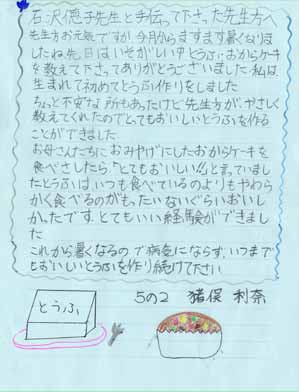 石沢徳子先生と手伝って下さった先生方へ
先生方お元気ですか。今月からますます暑くなりま
したね。先日はいそがしい中とうふ、おからケーキ
を教えて下さってありがとうございました。私は、
生まれて初めてとうふ作りをしました
ちょっと不安な所もあったけど先生方が、やさしく
教えてくれたのでとてもおいしいとうふを作る
ことができました。
お母さんたちにおみやげにしたおからケーキを
食べさしたら「とてもおいしい!!」と言っていまし
たとうふは、いつも食べているのよりもやわら
かく食べるのがもったいないぐらいおいし
かったです。とてもいい経験ができまし
た
これから暑くなるので病気にならず、いつまで
もおいしいとうふを作り続けて下さい
5の2 猪俣 利奈
とうふ